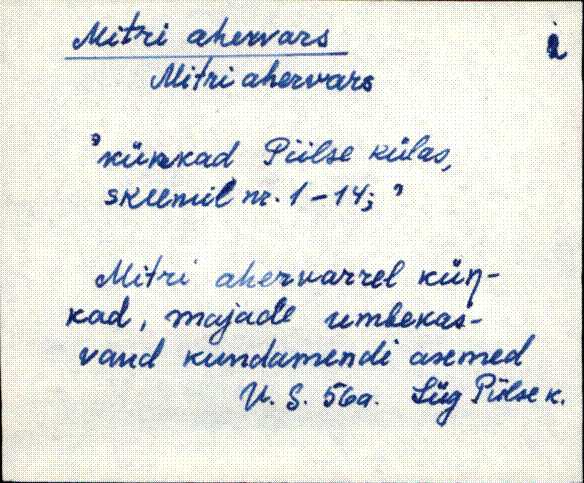 Mitri ahervars
Mitri ahervars
"künkad Püilse külas,
skeemil nr. 1-14;"
Mitri ahervarrel kün-
kad, majade umbekas-
vand kundamendi asemed
U. S. 56a. Lüg Püilse k.